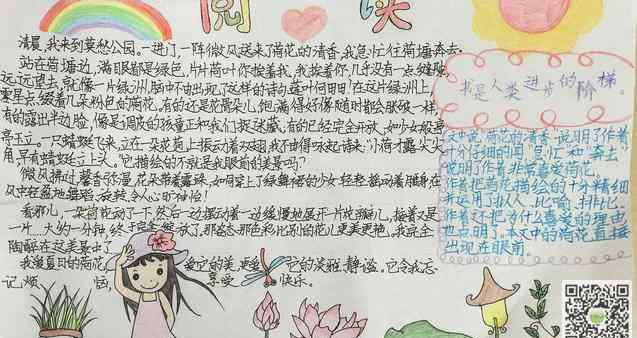 阅读
清晨,我来到莫愁公园,一进门,一阵微风送来了荷花的清香,我急忙往荷塘奔去。
站在荷塘边,满眼都是绿色,片片荷叶你挨着我,我挨着你,几乎没有一点缝隙,
远远望去,就像一片绿洲,脑中不由出现了这样的诗句:莲叶何田田!在这片绿洲上,
零星点缀着几朵粉色的荷花,有的还是花骨朵儿,饱满得好像随时都会破一样,
有的露出半边脸,像是调皮的孩童正和我们捉迷藏,有的已经完全开放,如少女般亭
亭玉立。一只蜻蜓飞来,立在一朵花苞上振动着双翅,我不由得咏起诗来:“小荷才露尖尖
角,早有蜻蜓立上头。”它描绘的不就是我眼前的美景吗?
微风拂过,馨香弥漫,花朵带着露珠,如同穿上了绿舞裙的少女轻轻摇动着身体在
风中轻盈地舞蹈,旋转,令人心旷神怡!
看那儿,一朵荷花动了一下,然后一边摆动着一边缓慢地展开一片花瓣儿,接着又是
一片……大约一分钟,终于完全绽放了,那姿态那色彩比别的花儿更美更艳。我完全
陶醉在这美景中了
我爱夏日的荷花 爱它的美,更爱 它的淡雅、静谧。它令我忘
记烦 恼, 享受 快乐。
书是人类进步的阶梯。
文中说“荷花的清香”说明了作者
十分仔细的闻,“急忙”和“奔去”
说明了作者非常喜爱荷花。
作者把荷花描绘的十分精细
并运用了拟人、比喻、排比。
作者还把为什么喜爱的理由
也点明了。本文中的荷花直接
出现在眼前。